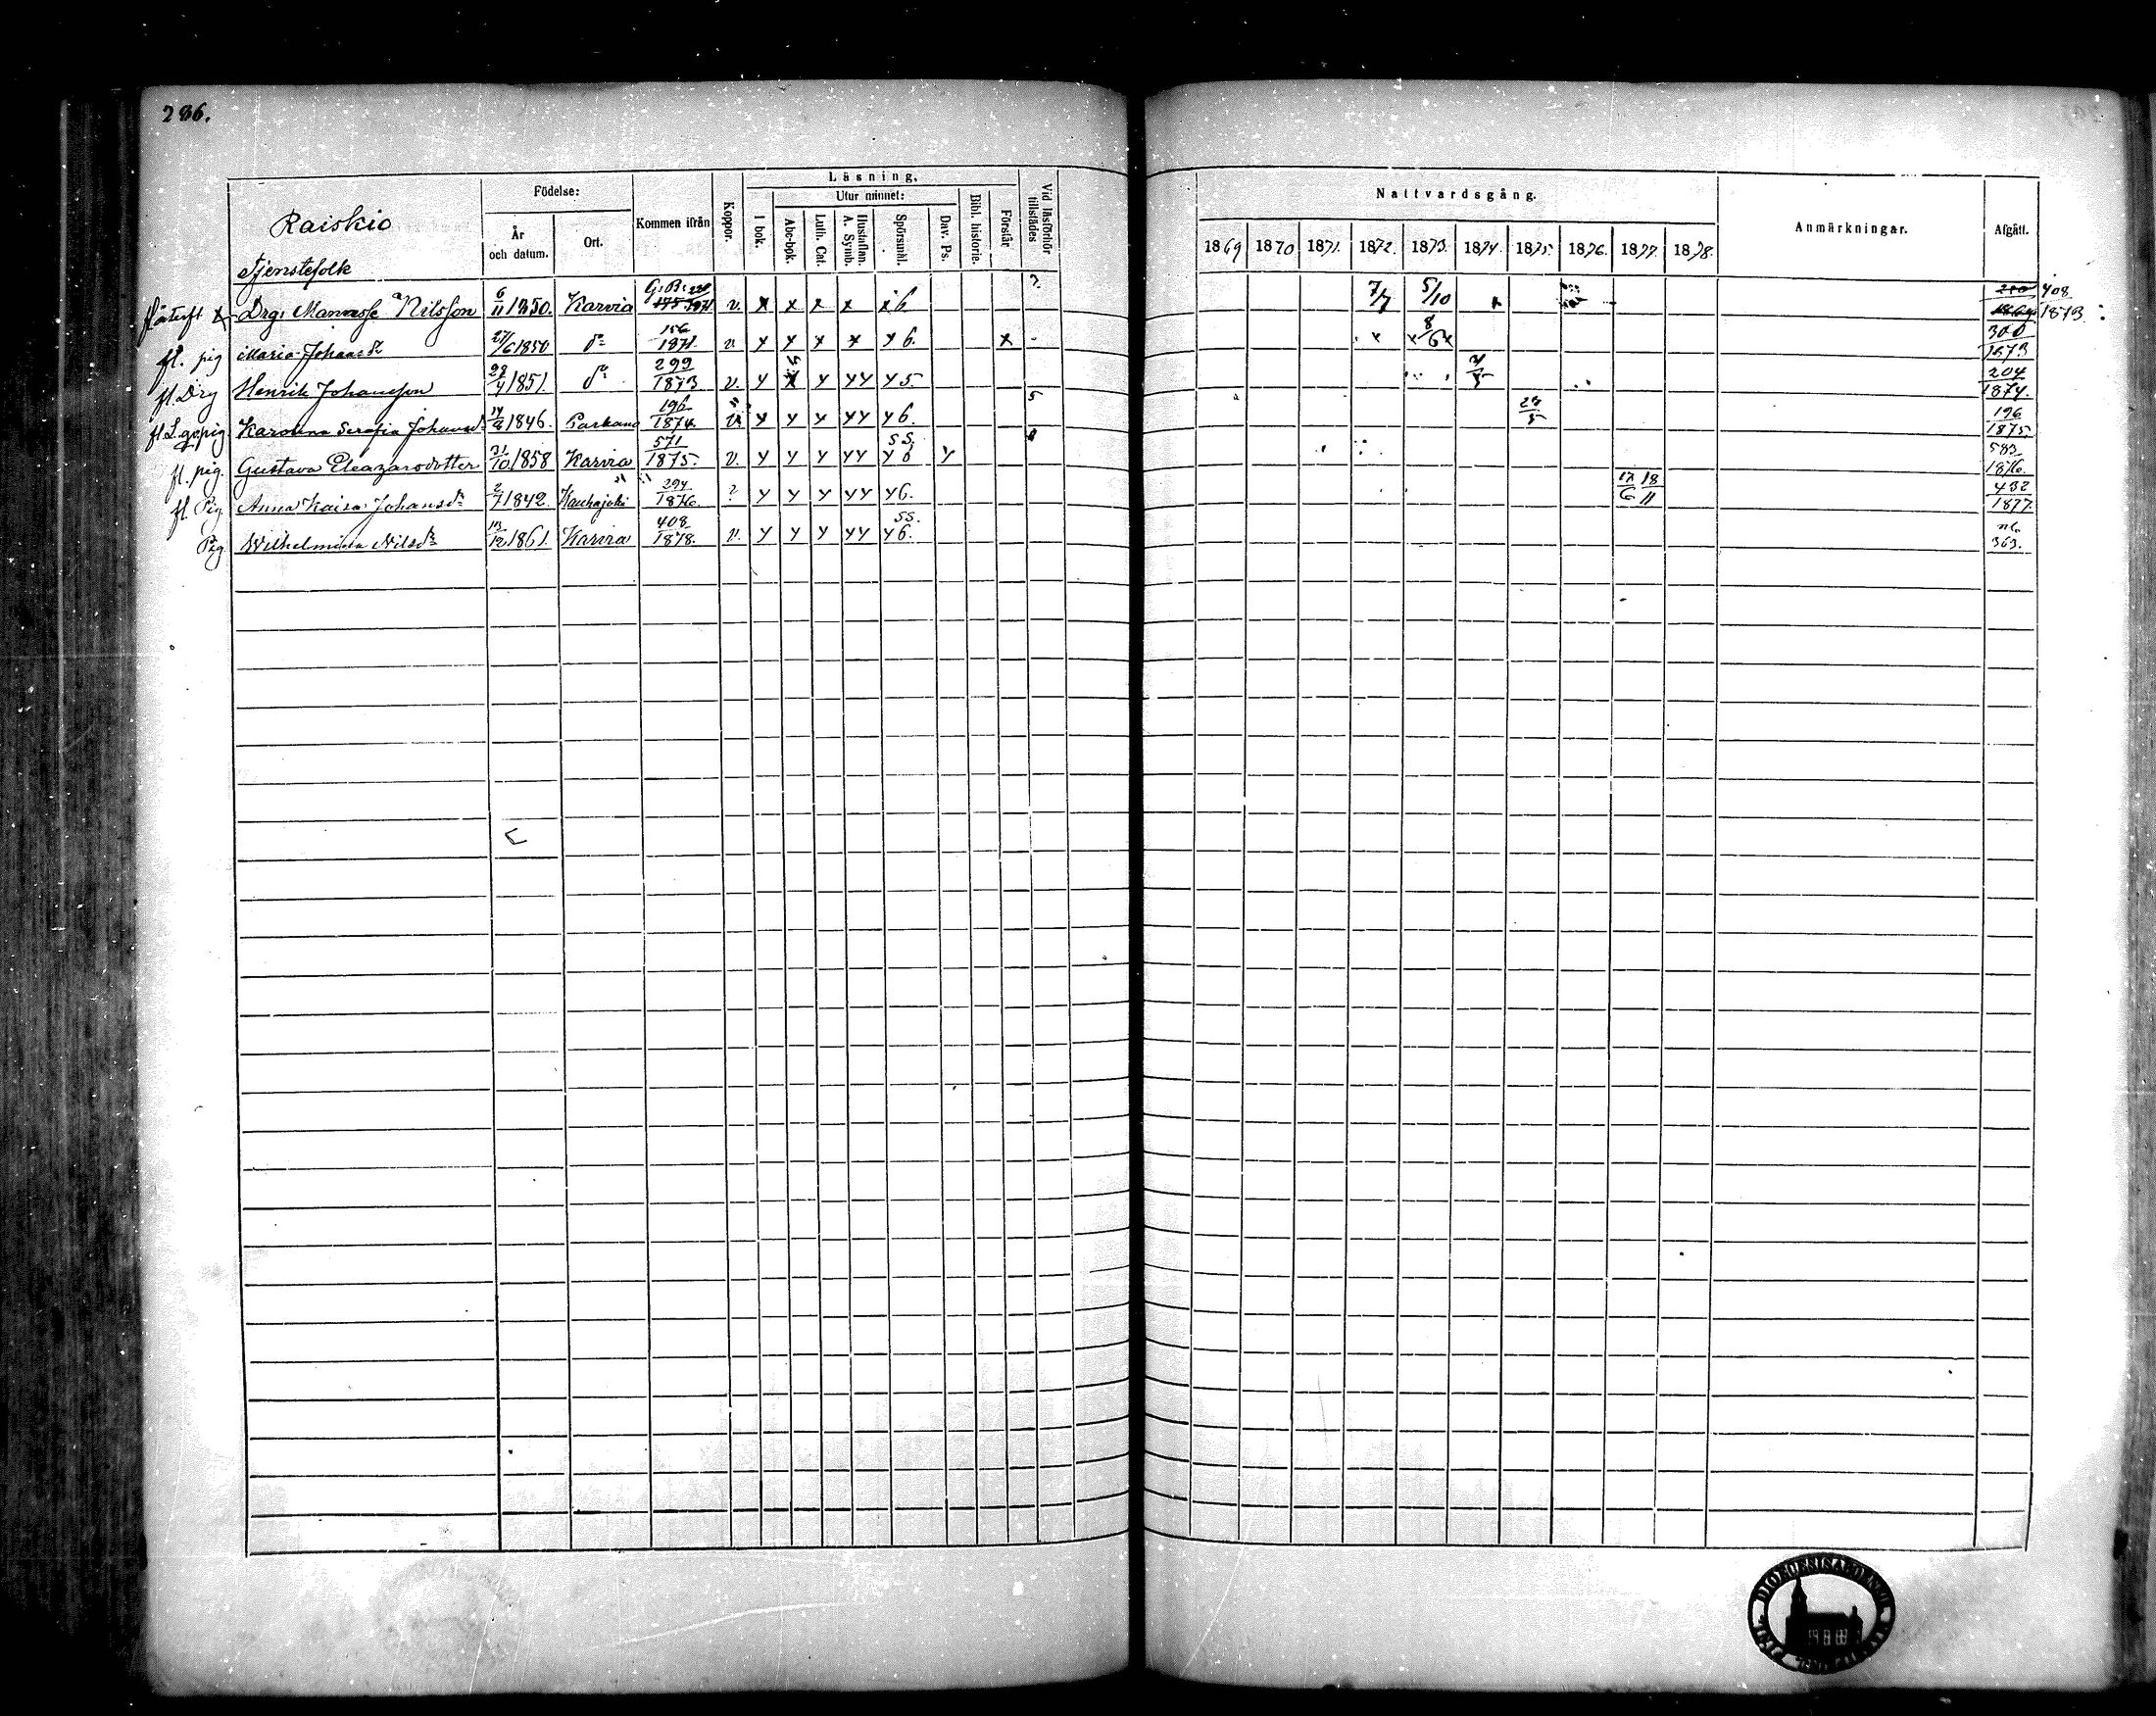 286.
Raiskio
Tjenstefolk
Födelse:
År och datum.
Ort.
Kommen ifrån
Koppor.
Läsning.
I bok.
Utur minnet:
Abc-bok.
Luth. Cat.
Hustaflan. A. Symb.
Spörsmål.
Dav. Ps.
Bibl. historie.
Förstår
Vid läsförhör tillstädes
Nattvardsgång.
1869 1870 1871. 1872. 1873. 1874. 1875. 1876. 1877. 1878.
Anmärkningar.
Afgått.
Drg. Manasse Nilsson 6/11 1850. Karvia G.B. v. x x x x x 6 7/7 5/10 408 1873.
fl. pig Maria Johansdr 27/6 1850 do 156/1871. v y y x x y 6. x 8/6 300/1873
fl Drg Henrik Johansson 28/4 1851. do 299/1873 v. y x y yy y 5. 204/1874.
Karolina Serafia Johansd 1846. Parkano 196/1874. v y y y yy y 6. 5 196/1875.
fl. pig. Gustava Eleazarsdotter 31/10 1858 Karvia 571/1875. v. y y y yy y 6 y 583/1876.
fl. Pig Anna Kaisa Johansdr 2/7 1842. Kauhajoki 294/1876. ? y y y yy y 6. 17/6 18/11 432/1877.
Pig. Wilhelmina Nilsdr 1861. Karvia 408/1878. v. y y y yy y 6. 363.